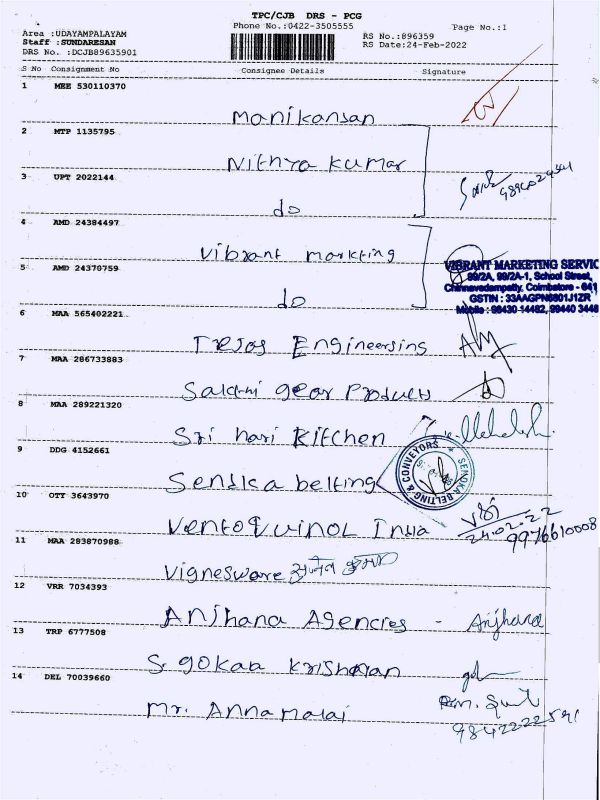 TPC/CJB DRS - PCG
Phone No.:0422-3505555
Page No.:1
Area :UDAYAMPALAYAM
Staff :SUNDARESAN
DRS No. :DCJB89635901
RS No.:896359
RS Date:24-Feb-2022
S No Consignment No Consignee Details Signature
1 MEE 530110370
Manikansan
2 MTP 1135795
Nithya Kumar
3 UPT 2022144
do
4 AMD 24384497
Vibrant markting
5 AMD 24370759
do
VIBRANT MARKETING SERVIC
99/2A, 99/2A-1, School Street,
Chinnavedampatty, Coimbatore - 641
GSTIN : 33AAGPN6801J1ZR
Mobile : 98430 14482, 99440 3448
6 MAA 565402221
Tejas Engineersing
7 MAA 286733883
Sakthi gear Products
8 MAA 289221320
Sri hari Kitchen
9 DDG 4152661
Senska belting
SENOKA BELTING & CONVEYORS
10 OTT 3643970
Ventoquinol India
24.02.22
9976610008
11 MAA 283870988
Vignesware
12 VRR 7034393
Anjhana Agencies - Anjhana
13 TRP 6777508
S. gokaa Krishanan
14 DEL 70039660
Mr. Annamalai
9842222591